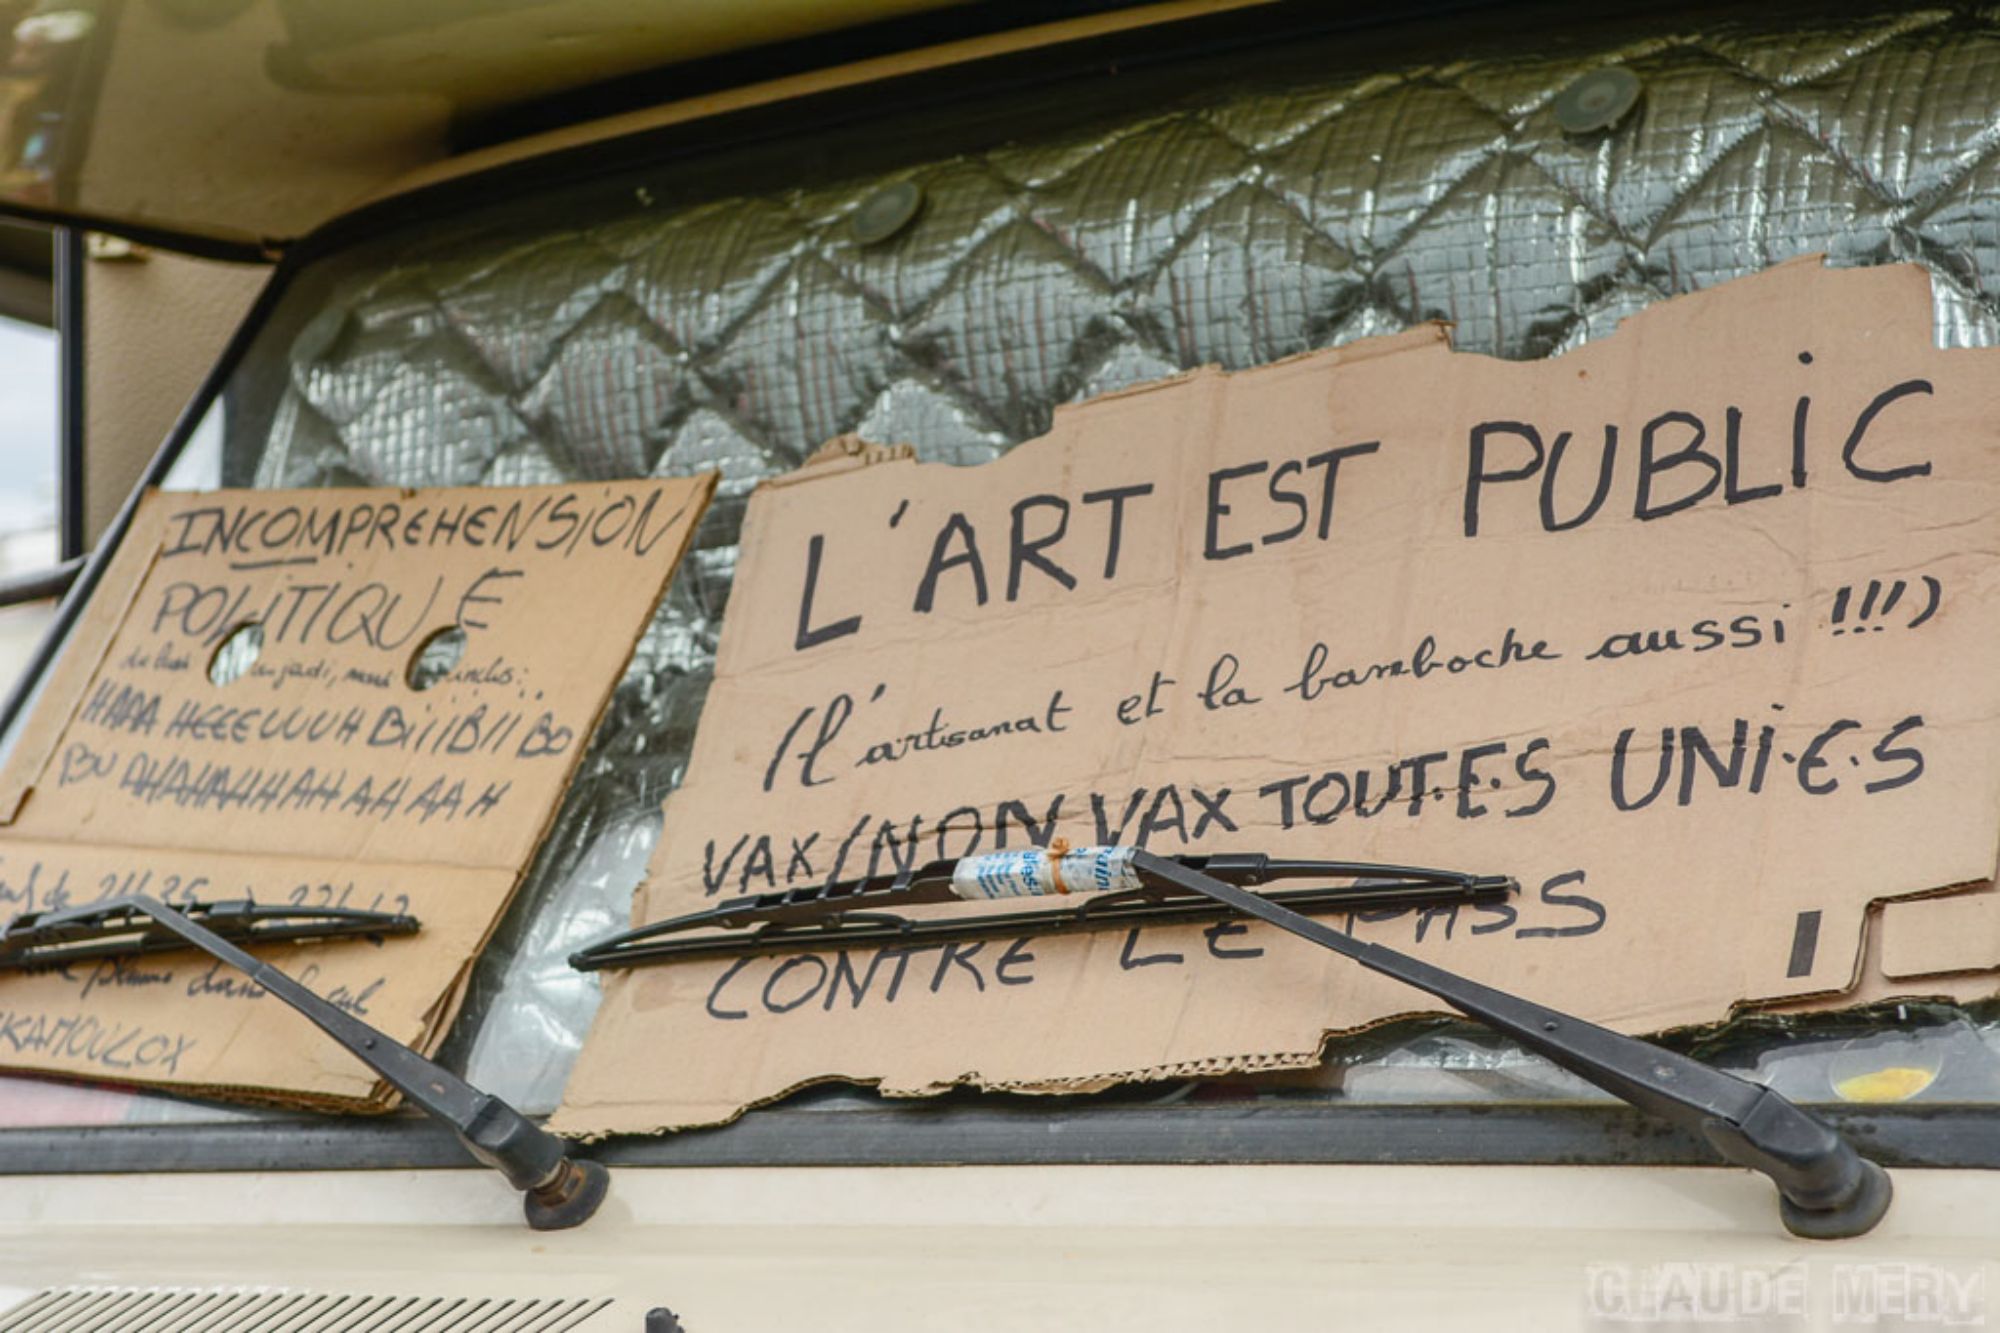 INCOMPREHENSION
POLITIQUE
HAAA HEEEUUUH BIIIBII BO
BU AHAHAHHAHAHAAH
dans
KAMOULOX
L'ART EST PUBLIC
(l'artisanat et la bamboche aussi !!!)
VAX/NON VAX TOUT.E.S UNI.E.S
CONTRE LE PASS
CLAUDE MERY